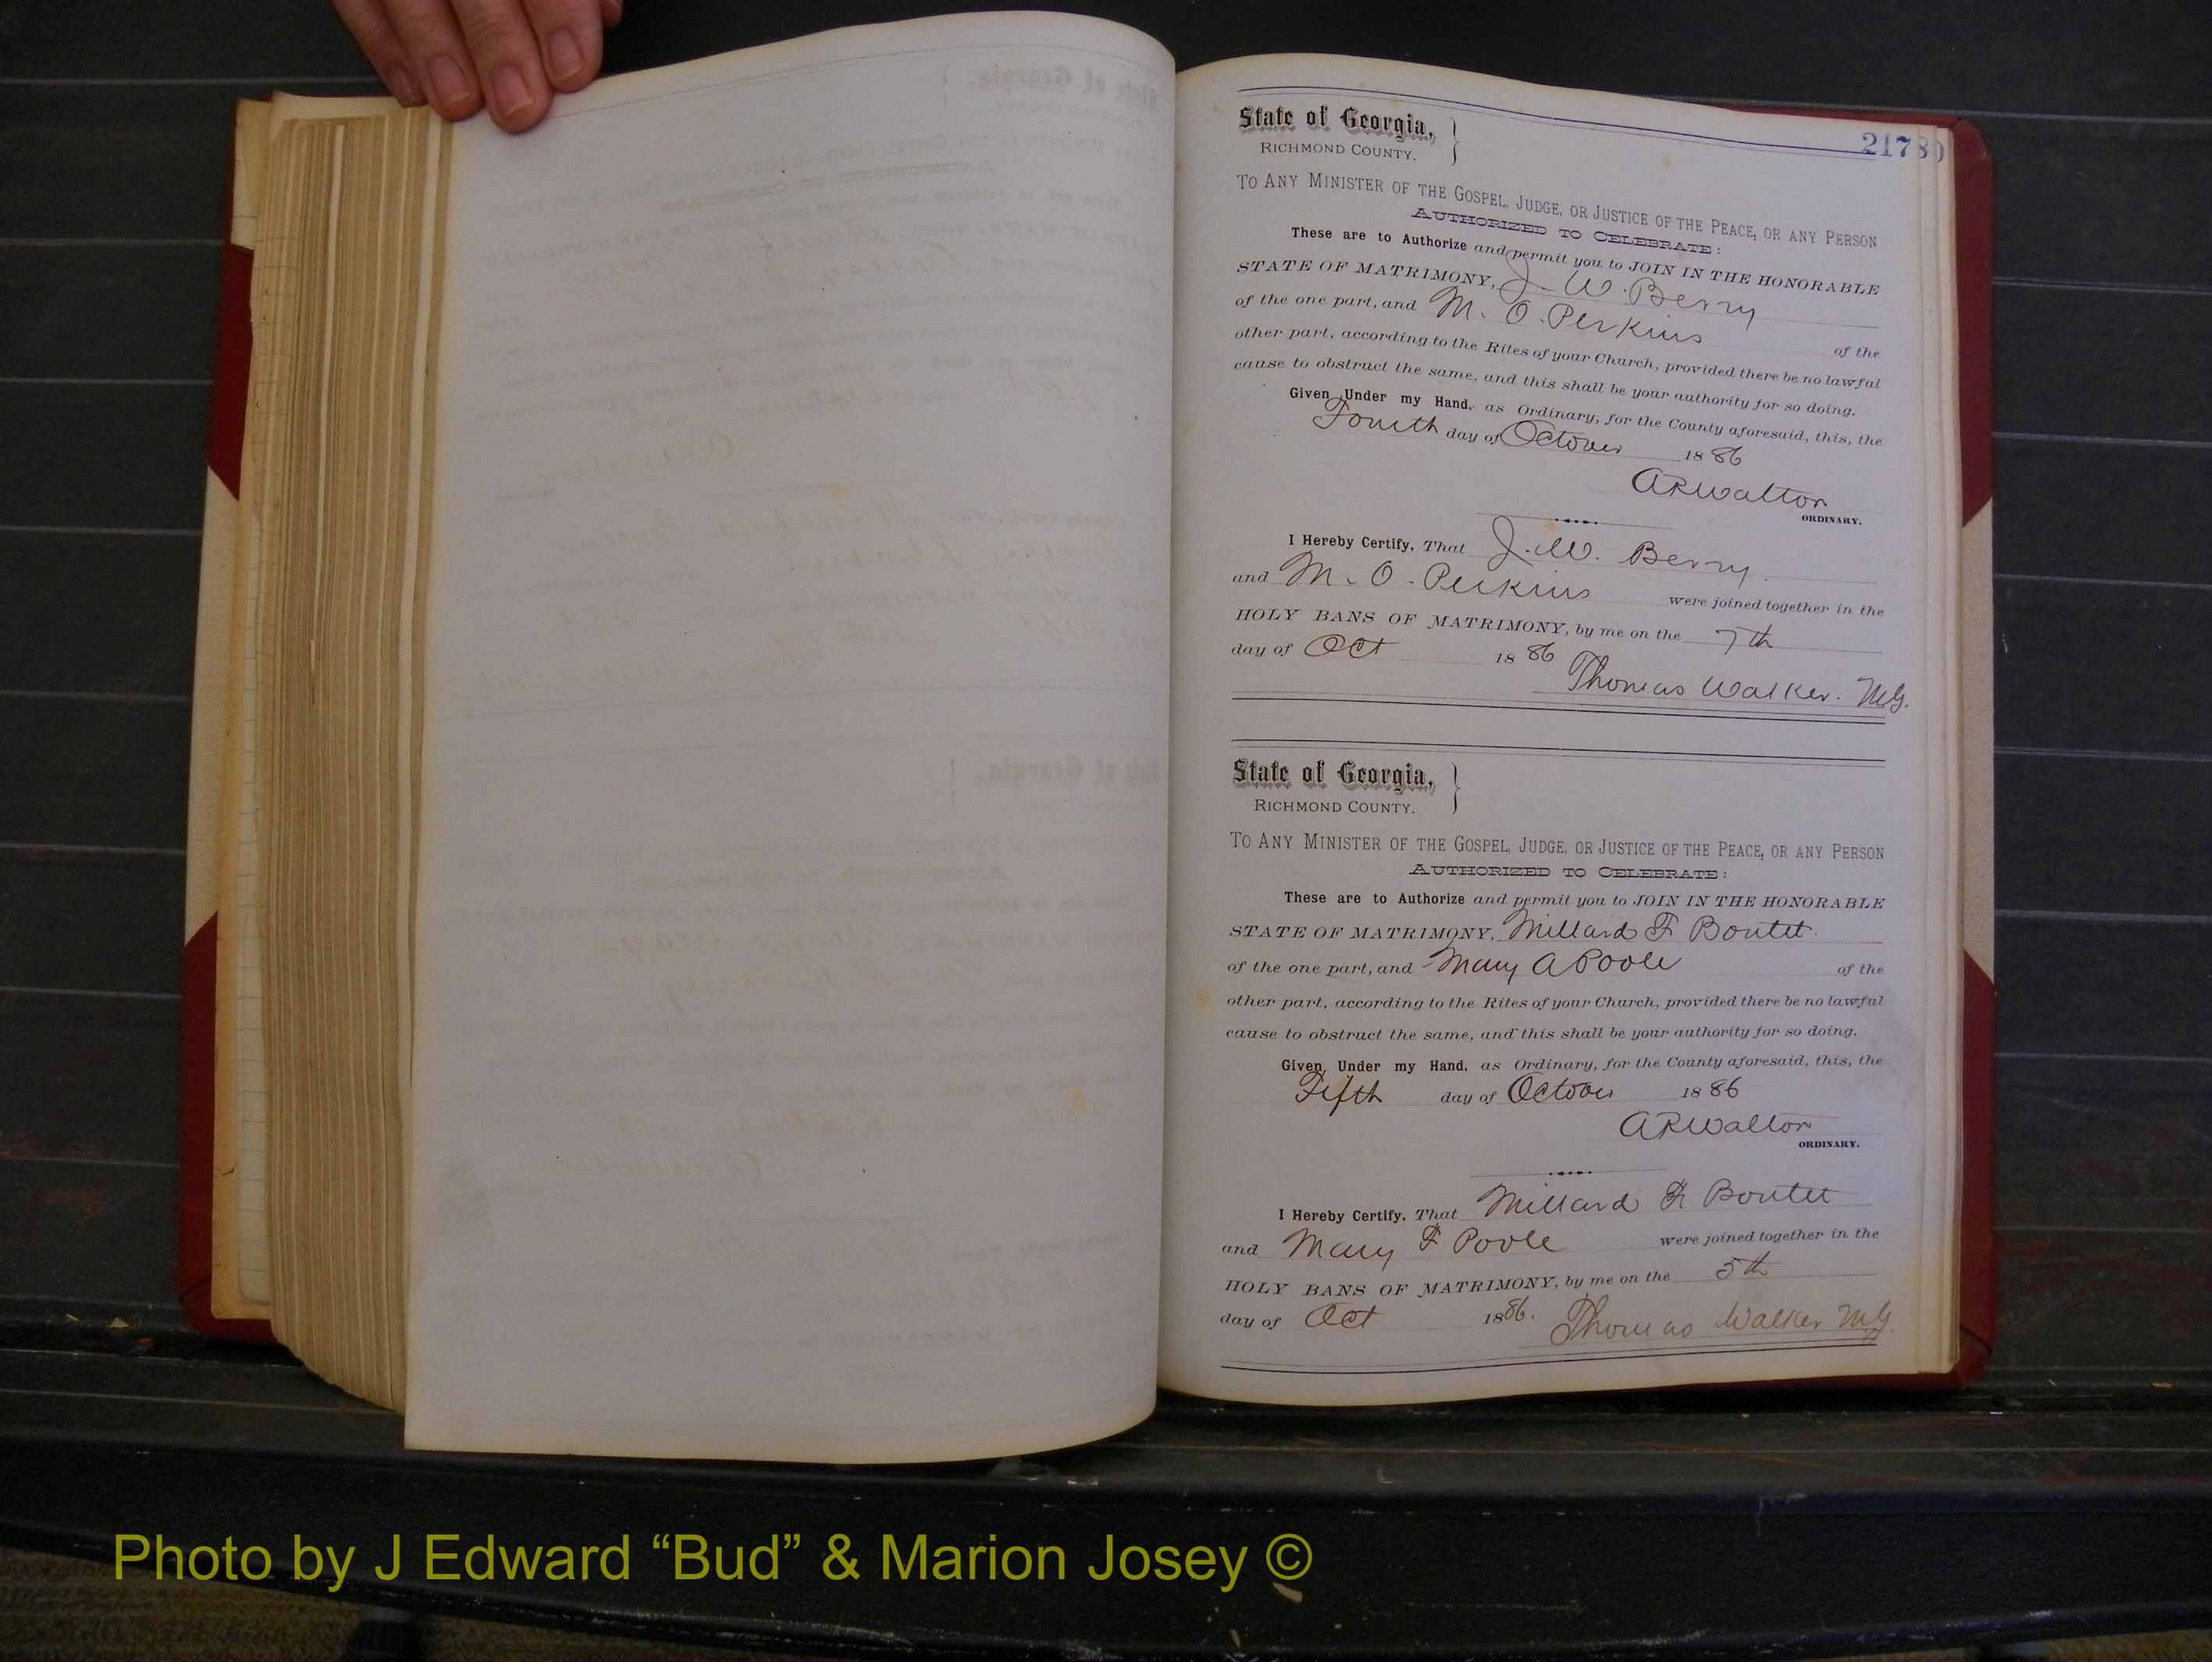 State of Georgia,
RICHMOND COUNTY.
217
TO ANY MINISTER OF THE GOSPEL, JUDGE, OR JUSTICE OF THE PEACE, OR ANY PERSON
AUTHORIZED TO CELEBRATE:
These are to Authorize and permit you to JOIN IN THE HONORABLE
STATE OF MATRIMONY, J. W. Berry
of the one part, and M. O. Perkins of the
other part, according to the Rites of your Church, provided there be no lawful
cause to obstruct the same, and this shall be your authority for so doing.
Given Under my Hand, as Ordinary, for the County aforesaid, this, the
Fourth day of October 1886
ARWalton
ORDINARY.
I Hereby Certify, That J. W. Berry.
and M. O. Perkins were joined together in the
HOLY BANS OF MATRIMONY, by me on the 7th
day of Oct 1886
Thomas Walker. M.G.
State of Georgia,
RICHMOND COUNTY.
TO ANY MINISTER OF THE GOSPEL, JUDGE, OR JUSTICE OF THE PEACE, OR ANY PERSON
AUTHORIZED TO CELEBRATE:
These are to Authorize and permit you to JOIN IN THE HONORABLE
STATE OF MATRIMONY, Millard F Boutet.
of the one part, and Mary A Poole of the
other part, according to the Rites of your Church, provided there be no lawful
cause to obstruct the same, and this shall be your authority for so doing.
Given Under my Hand, as Ordinary, for the County aforesaid, this, the
Fifth day of October 1886
ARWalton
ORDINARY.
I Hereby Certify, That Millard F Boutet
and Mary F Poole were joined together in the
HOLY BANS OF MATRIMONY, by me on the 5th
day of Oct 1886. Thomas Walker M.G.
Photo by J Edward “Bud” & Marion Josey ©